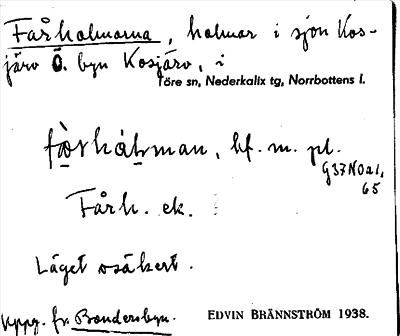 Fårholmarna, holmar i sjön Kos-
järv Ö. byn Kosjärv, i
Töre sn, Nederkalix tg, Norrbottens l.
fàrhȧḷman, bf. m. pl.
G37NOa1,
65
Fårh. ek.
Läget osäkert.
Uppg. fr. Bondersbyn.
EDVIN BRÄNNSTRÖM 1938.